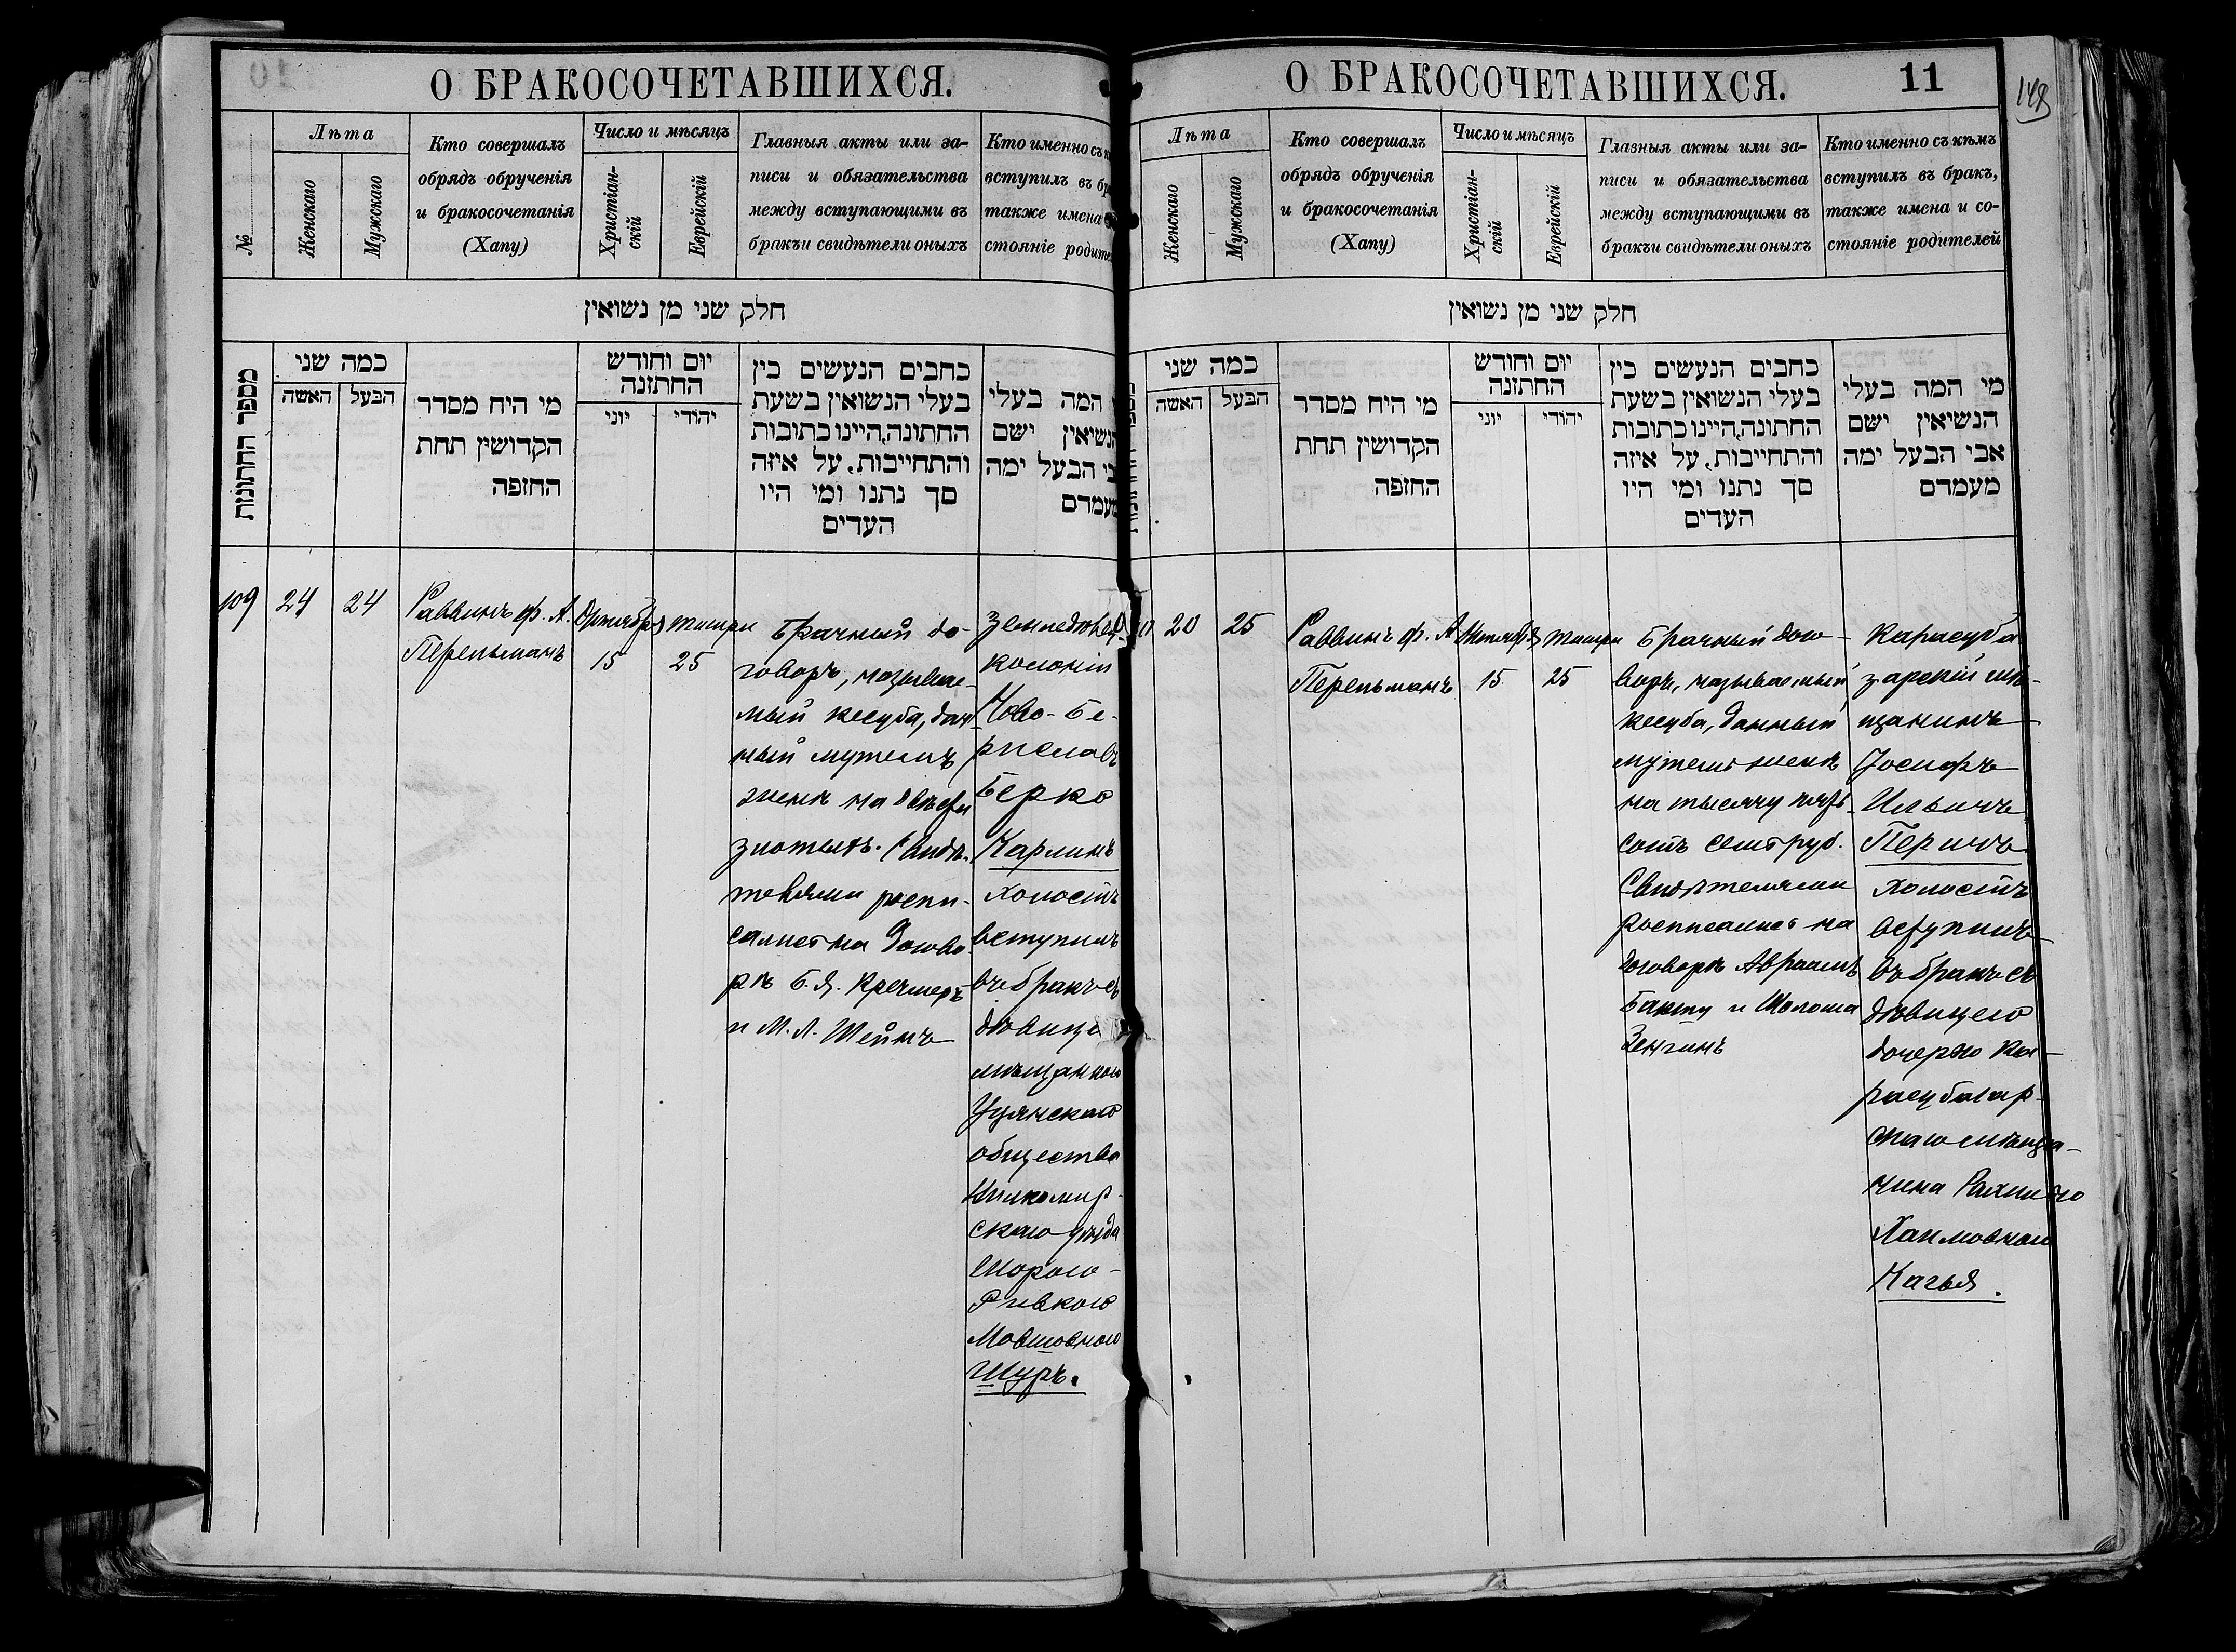 О БРАКОСОЧЕТАВШИХСЯ.
№
Лѣта
Женскаго
Мужскаго
Кто совершалъ
обрядъ обрученія
и бракосочетанія
(Хапу)
Число и мѣсяцъ
Христіан-
скій
Еврейскій
Главныя акты или за-
писи и обязательства
между вступающими въ
бракъи свидѣтели оныхъ
Кто именно съ
вступилъ въ бр
также имена
стояніе родите
חלק שני מן נשואין
מספר החתונות
כמה שני
האשה
הבעל
מי היח מסדר
הקדושין תחת
החזפה
יום וחודש
החתזנה
יוני
יהודי
כחבים הנעשים כין
בעלי הנשואין בשעת
החתונה,היינו כתובות
והתחייבות, על איזה
סך נתנו ומי היו
העדים
המה בעלי
הנשיאין ישם
בי הבעל ימה
מעמדם
109
24
24
Раввинъ ф. А.
Перельманъ
Октября
15
Тишри
25
Брачный до-
говоръ, называе-
мый кесуба, дан
ный мужемъ
женѣ на двѣсти
злотыхъ. Свидѣ-
телями роспи-
сались на догово-
рѣ Б. Я. Кречмеръ
и М. Л. Шейнъ
Земледѣлецъ
колоніи
Ново-Бе-
риславъ
Берко
Карлинъ
холостъ
вступилъ
въ бракъ съ
дѣвице
мѣщанкою
Уцянскаго
общества
Вилкомир-
скаго уѣзда
Шорою-
Ривкою
Мовшовною
Шуръ.
О БРАКОСОЧЕТАВШИХСЯ.
11
148
Лѣта
Женскаго
Мужскаго
Кто совершалъ
обрядъ обрученія
и бракосочетанія
(Хапу)
Число и мѣсяцъ
Христіан-
скій
Еврейскій
Главныя акты или за-
писи и обязательства
между вступающими въ
бракъи свидѣтели оныхъ
Кто именно съ кѣмъ
вступилъ въ бракъ,
также имена и со-
стояніе родителей
חלק שני מן נשואין
כמה שני
האשה
הבעל
מי היח מסדר
הקדושין תחת
החזפה
יום וחודש
החתזנה
יוני
יהודי
כחבים הנעשים כין
בעלי הנשואין בשעת
החתונה,היינו כתובות
והתחייבות, על איזה
סך נתנו ומי היו
העדים
מי המה בעלי
הנשיאין ישם
אבי הבעל ימה
מעמדם
20
25
Раввинъ ф. А
Перельманъ
Октября
15
Тишри
25
Брачный дого-
воръ, называемый
кесуба, данный
мужемъ женѣ
на тысячу пять-
сотъ семь руб.
Свидѣтелями
росписались на
договорѣ Авраамъ
Бакшу и Шолома
Зенгинъ
Карасуба
зарскій мѣ-
щанинъ
Іосифъ
Ильичъ
Перичъ
холостъ
вступилъ
въ бракъ съ
дѣвицею
дочерью Ка-
расубазар-
скаго мѣща-
нина Рахилью
Хаимовною
Качья.